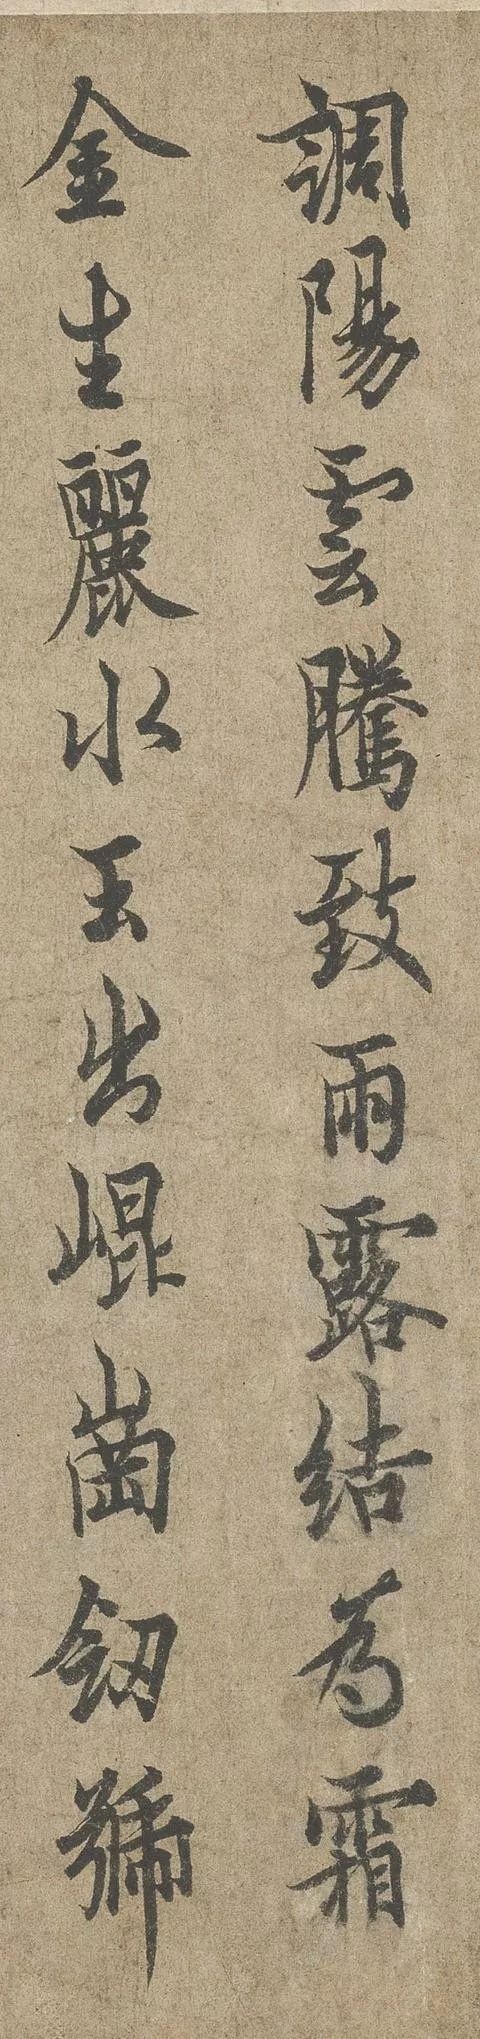 調陽雲騰致雨露結為霜
金生麗水玉出崐崗釰號